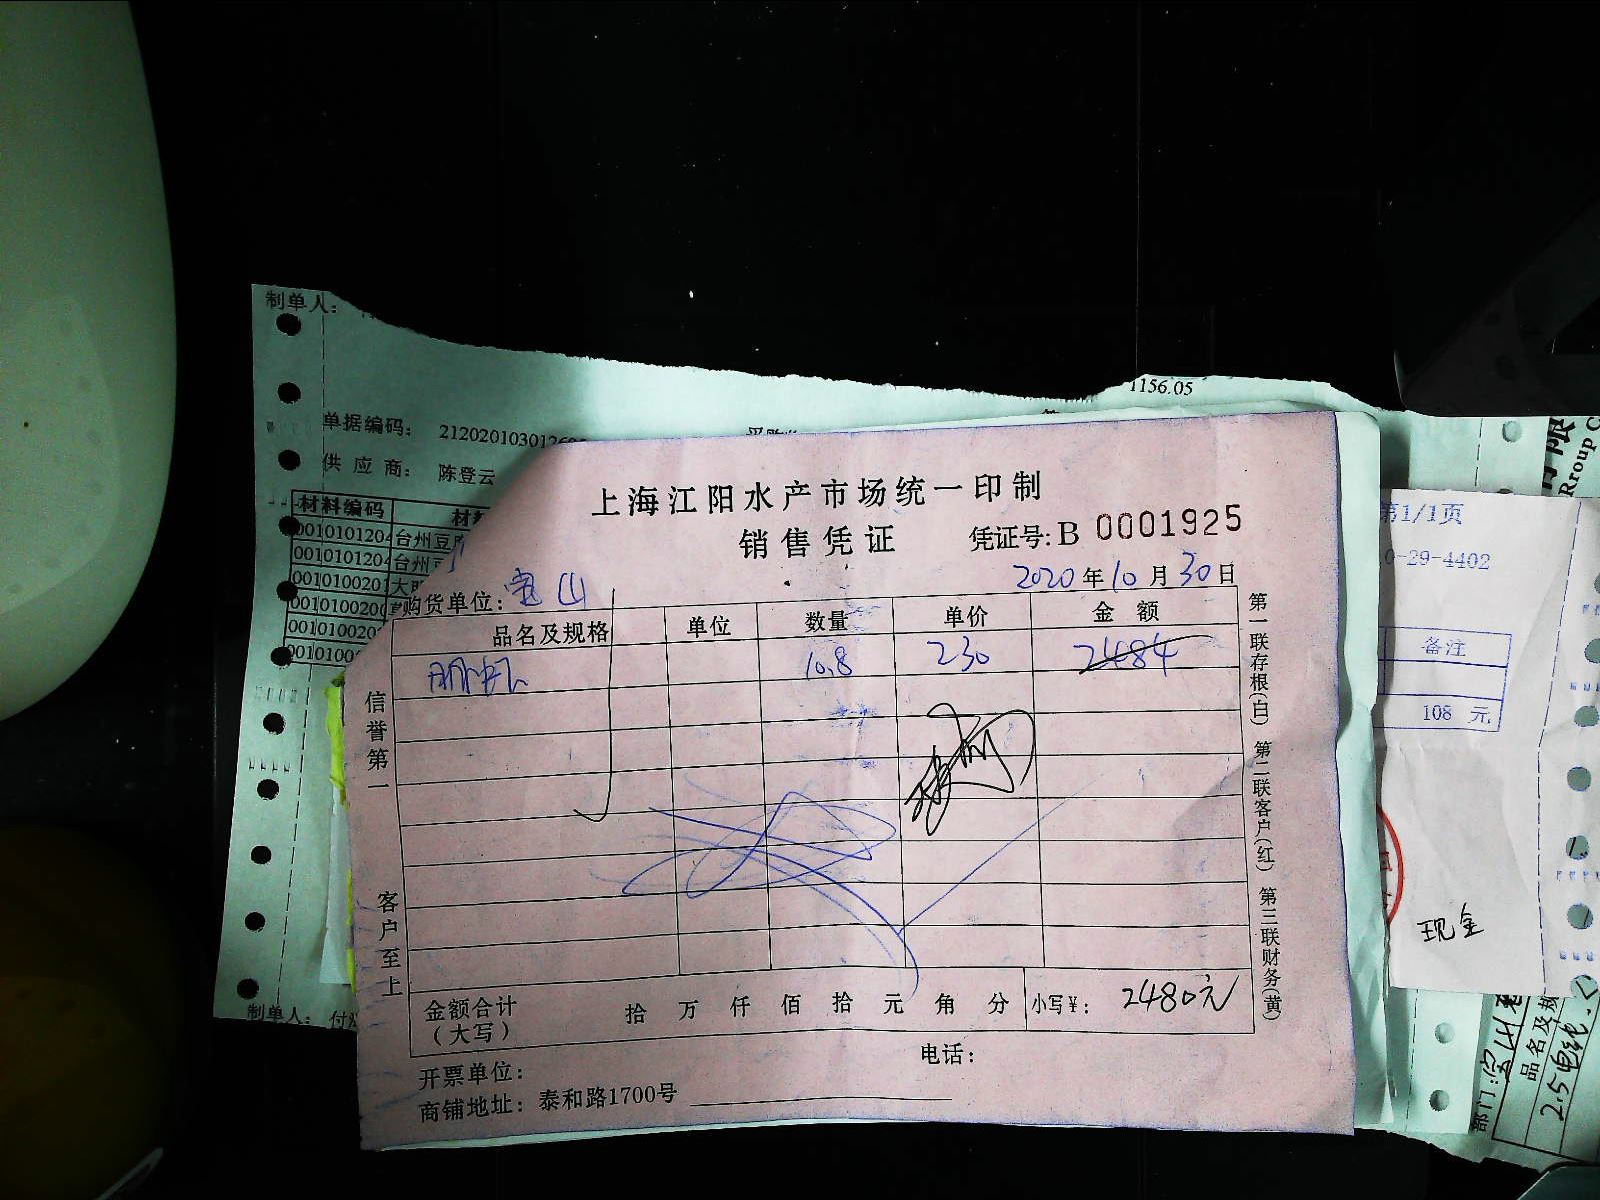 制单人:
1156.05
单据编码: 212020103012
供应商: 陈登云
材料编码
001010120 台州豆
001010120 台州豆
0010100201 大
001010020
001010020
上海江阳水产市场统一印制
销售凭证 凭证号: B 0001925
2020年10月30日
购货单位: 宝山
品名及规格 单位 数量 单价 金额
10.8 230 2484
信誉第一
客户至上
第一联存根(白) 第二联客户(红) 第三联财务(黄)
金额合计(大写) 拾 万 仟 佰 拾 元 角 分 小写¥: 2480元
电话:
开票单位:
商铺地址: 泰和路1700号
制单人: 付
第1/1页
0-29-4402
备注
108 元
现金
Rroup C
部门: 宝山
品名及规
2.5电